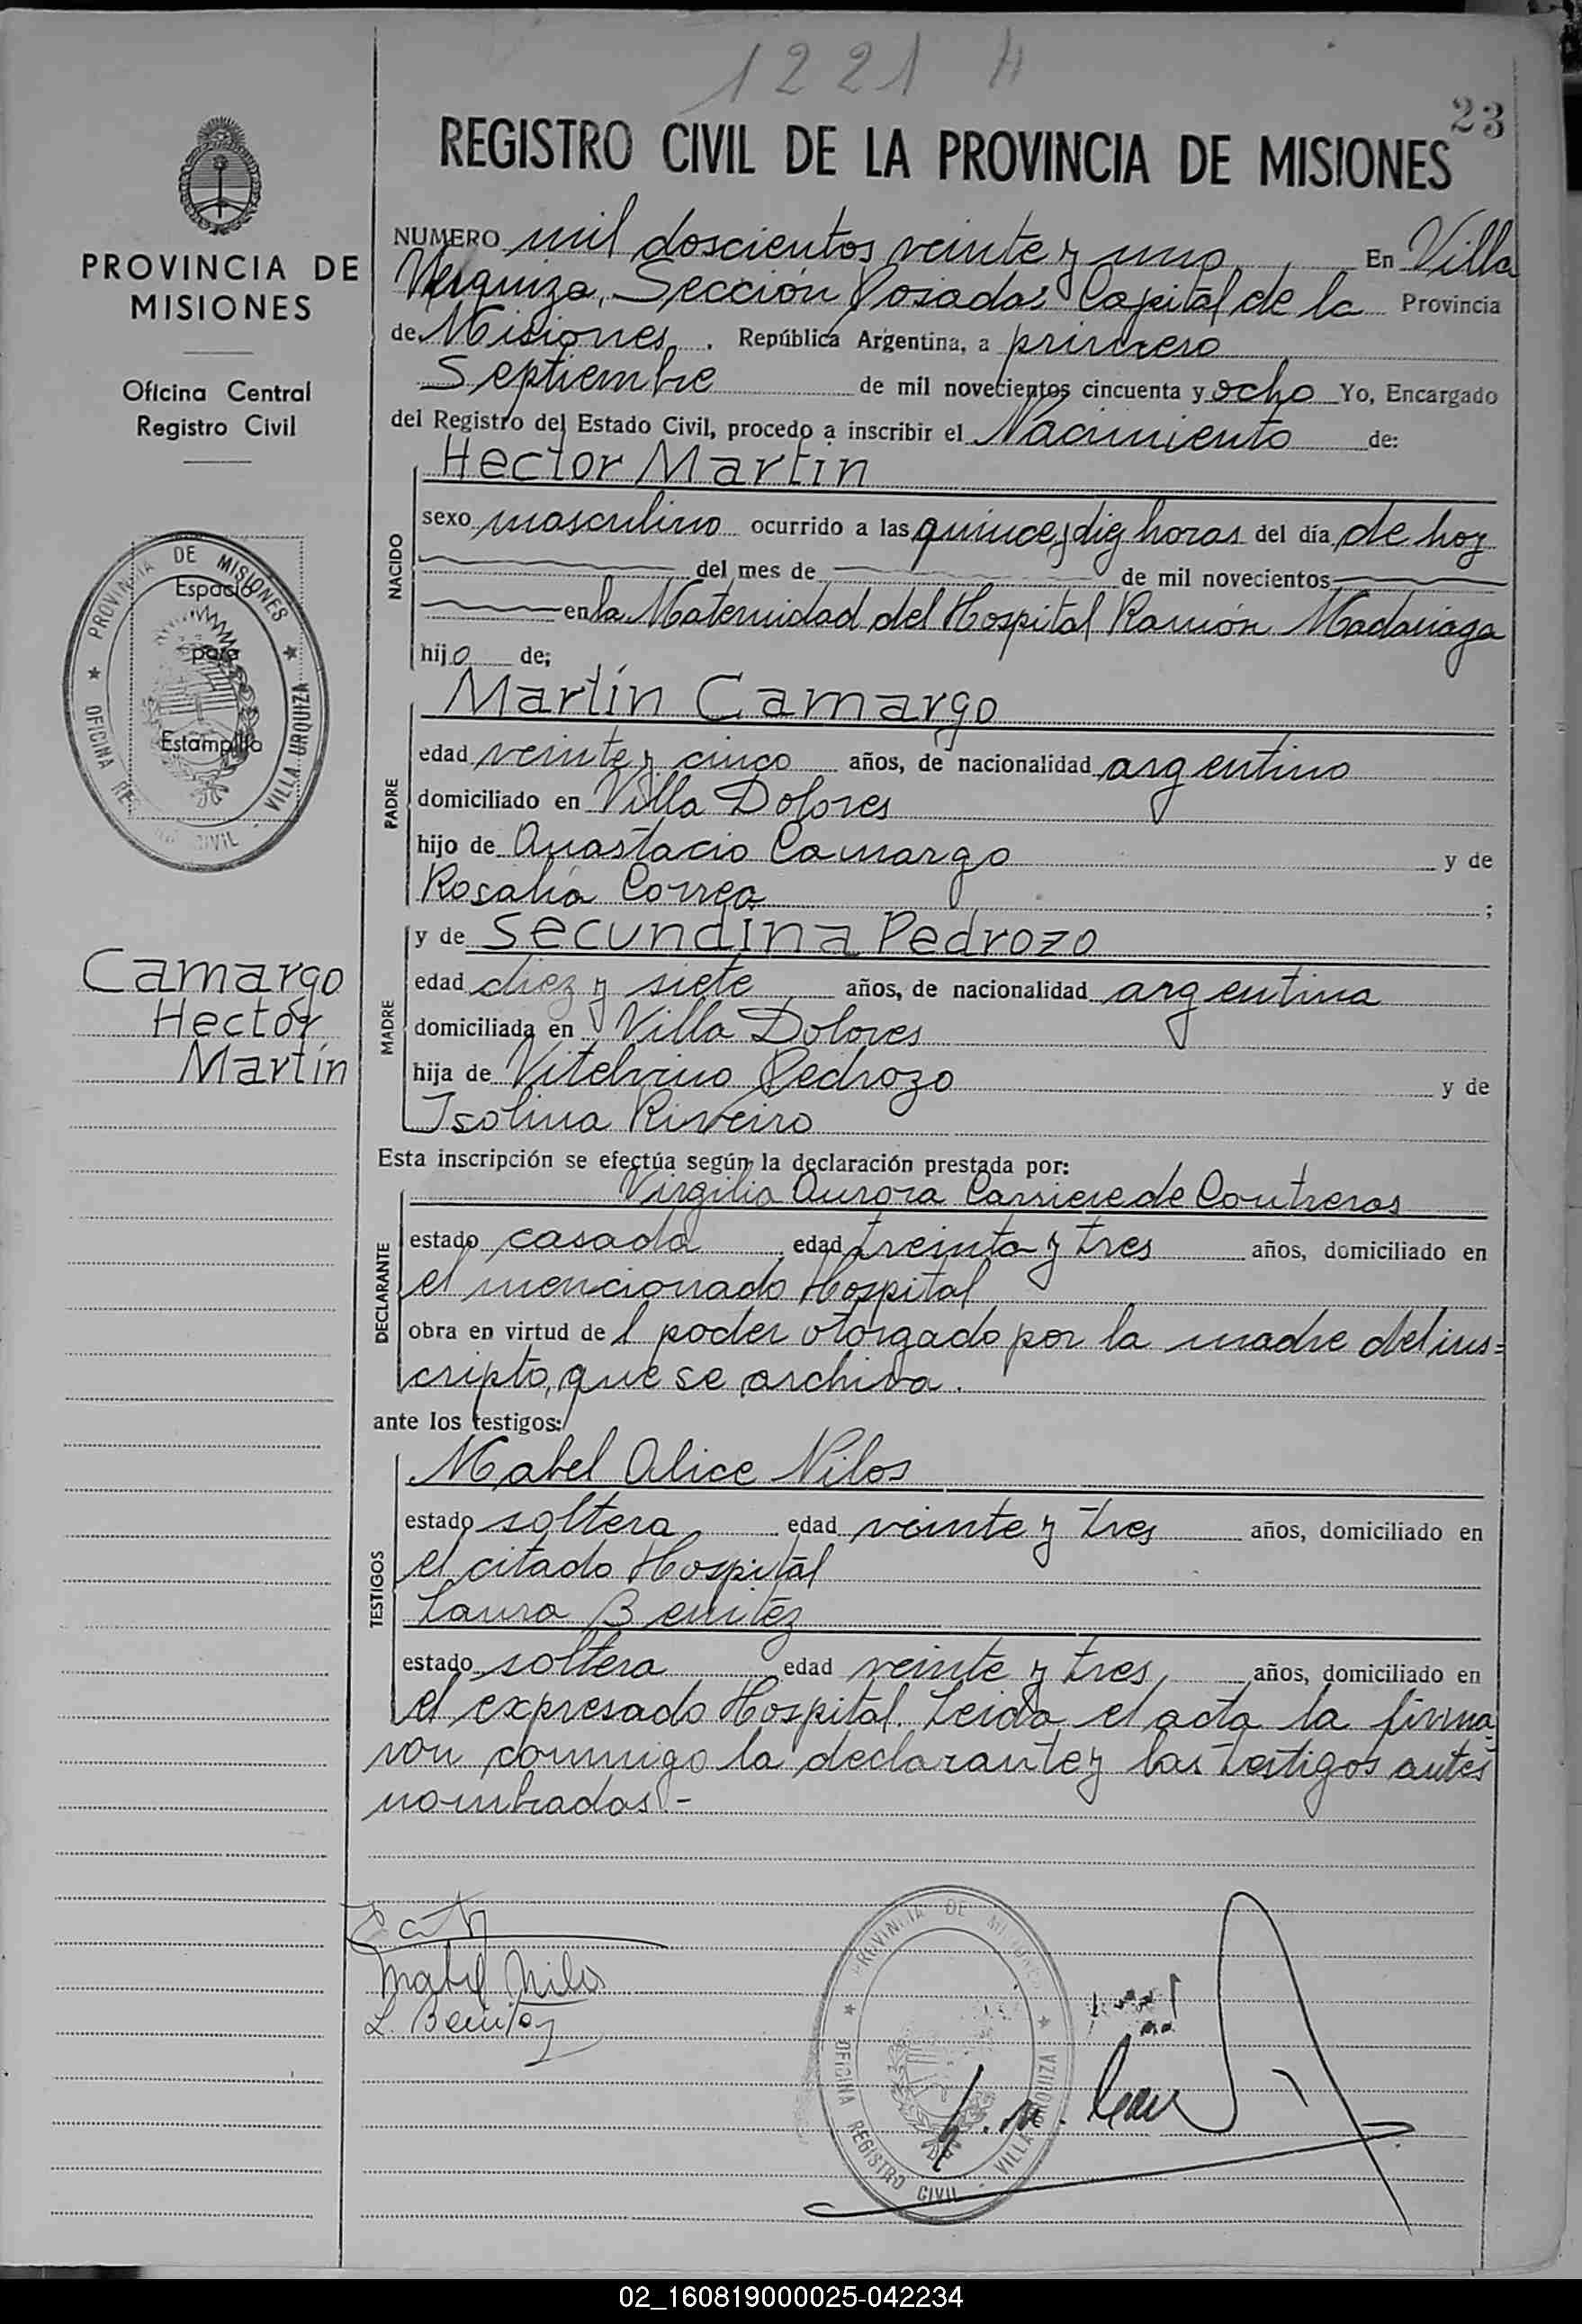 1221 H
23
REGISTRO CIVIL DE LA PROVINCIA DE MISIONES
PROVINCIA DE
MISIONES
Oficina Central
Registro Civil
PROVINCIA DE MISIONES
OFICINA REGISTRO CIVIL - VILLA URQUIZA
Espacio
para
Estampilla
Camargo
Hector
Martín
NUMERO mil doscientos veinte y uno En Villa
Urquiza, Sección Posadas Capital de la Provincia
de Misiones. República Argentina, a primero
Septiembre de mil novecientos cincuenta y ocho Yo, Encargado
del Registro del Estado Civil, procedo a inscribir el Nacimiento de:
NACIDO
Hector Martín
sexo masculino ocurrido a las quince y diez horas del día de hoy
del mes de de mil novecientos
en la Maternidad del Hospital Ramón Madariaga
hijo de;
PADRE
Martín Camargo
edad veinte y cinco años, de nacionalidad argentino
domiciliado en Villa Dolores
hijo de Anastacio Camargo y de
Rosalía Correa ;
MADRE
y de Secundina Pedrozo
edad diez y siete años, de nacionalidad argentina
domiciliada en Villa Dolores
hija de Vitelvino Pedrozo y de
Isolina Riveiro
Esta inscripción se efectúa según la declaración prestada por:
DECLARANTE
Virgilia Aurora Carriere de Contreras
estado casada edad treinta y tres años, domiciliado en
el mencionado Hospital
obra en virtud del poder otorgado por la madre del ins=
cripto, que se archiva.
ante los testigos:
TESTIGOS
Mabel Alice Nilos
estado soltera edad veinte y tres años, domiciliado en
el citado Hospital
Laura Benitez
estado soltera edad veinte y tres años, domiciliado en
el expresado Hospital. Leida el acta la firma
ron conmigo la declarante y los testigos antes
nombrados.-
Mabel Nilos
L. Benitez
PROVINCIA DE MISIONES
OFICINA REGISTRO CIVIL - VILLA URQUIZA
02_160819000025-042234